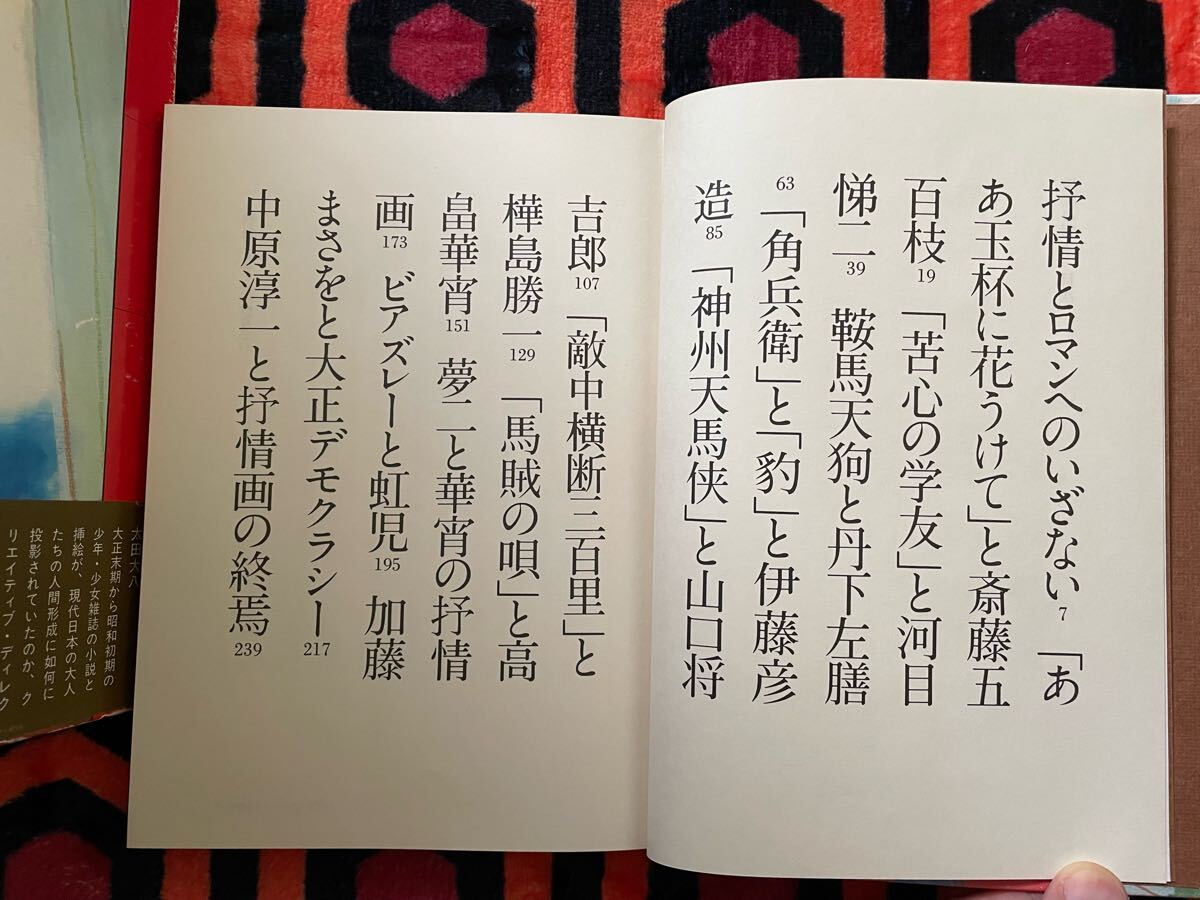 抒情とロマンへのいざない 7 「あ
あ玉杯に花うけて」と斎藤五
百枝 19 「苦心の学友」と河目
悌二 39 鞍馬天狗と丹下左膳
63 「角兵衛」と「豹」と伊藤彦
造 85 「神州天馬侠」と山口将
吉郎 107 「敵中横断三百里」と
樺島勝一 129 「馬賊の唄」と高
畠華宵 151 夢二と華宵の抒情
画 173 ビアズレーと虹児 195 加藤
まさをと大正デモクラシー 217
中原淳一と抒情画の終焉 239
太田大八
大正末期から昭和初期の
少年・少女雑誌の小説と
挿絵が、現代日本の大人
たちの人間形成に如何に
投影されていたのか、ク
リエイティブ・ディレク